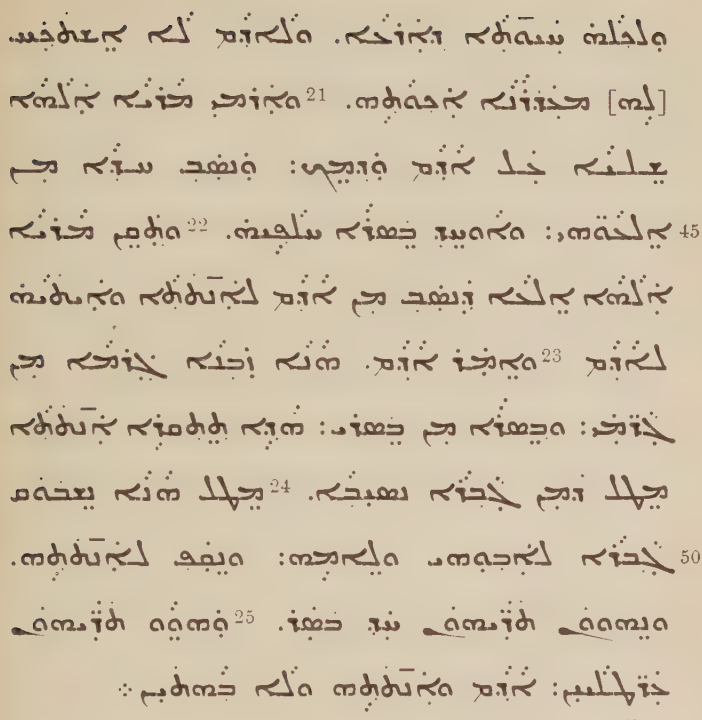 ܘܠܟܠܗ̇ ܚܝܘ̈ܬܐ ܕܐܪܥܐ. ܘܠܐܕܡ ܠܐ ܐܫܬܟܚ
[ܠܗ] ܡܥܕܪܢܐ ܐܟܘܬܗ. 21 ܘܐܪܡܝ ܡܪܝܐ ܐܠܗܐ
ܫܠܝܐ ܥܠ ܐܕܡ ܘܕܡܟ: ܘܢܣܒ ܚܕܐ ܡܢ
45 ܐܠܥܘ̈ܗܝ: ܘܐܘܚܕ ܒܣܪܐ ܚܠܦܝܗ̇. 22 ܘܬܩܢ ܡܪܝܐ
ܐܠܗܐ ܐܠܥܐ ܕܢܣܒ ܡܢ ܐܕܡ ܠܐܢ݇ܬܬܐ ܘܐܝܬܝܗ̇
ܠܐܕܡ 23 ܘܐܡܪ ܐܕܡ. ܗܢܐ ܙܒܢܐ ܓܪܡܐ ܡܢ
ܓܪ̈ܡܝ: ܘܒܣܪܐ ܡܢ ܒܣܪܝ: ܗܕܐ ܬܬܩܪܐ ܐܢ݇ܬܬܐ
ܡܛܠ ܕܡܢ ܓܒܪܐ ܢܣܝܒܐ. 24 ܡܛܠ ܗܢܐ ܢܫܒܘܩ
50 ܓܒܪܐ ܠܐܒܘܗܝ ܘܠܐܡܗ: ܘܢܩܦ ܠܐܢ݇ܬܬܗ.
ܘܢܗܘܘܢ ܬܪ̈ܝܗܘܢ ܚܕ ܒܣܪ. 25 ܘܗܘܘ ܬܪ̈ܝܗܘܢ
ܥܪ̈ܛܠܝܝܢ: ܐܕܡ ܘܐܢ݇ܬܬܗ ܘܠܐ ܒܗܬܝܢ ܀